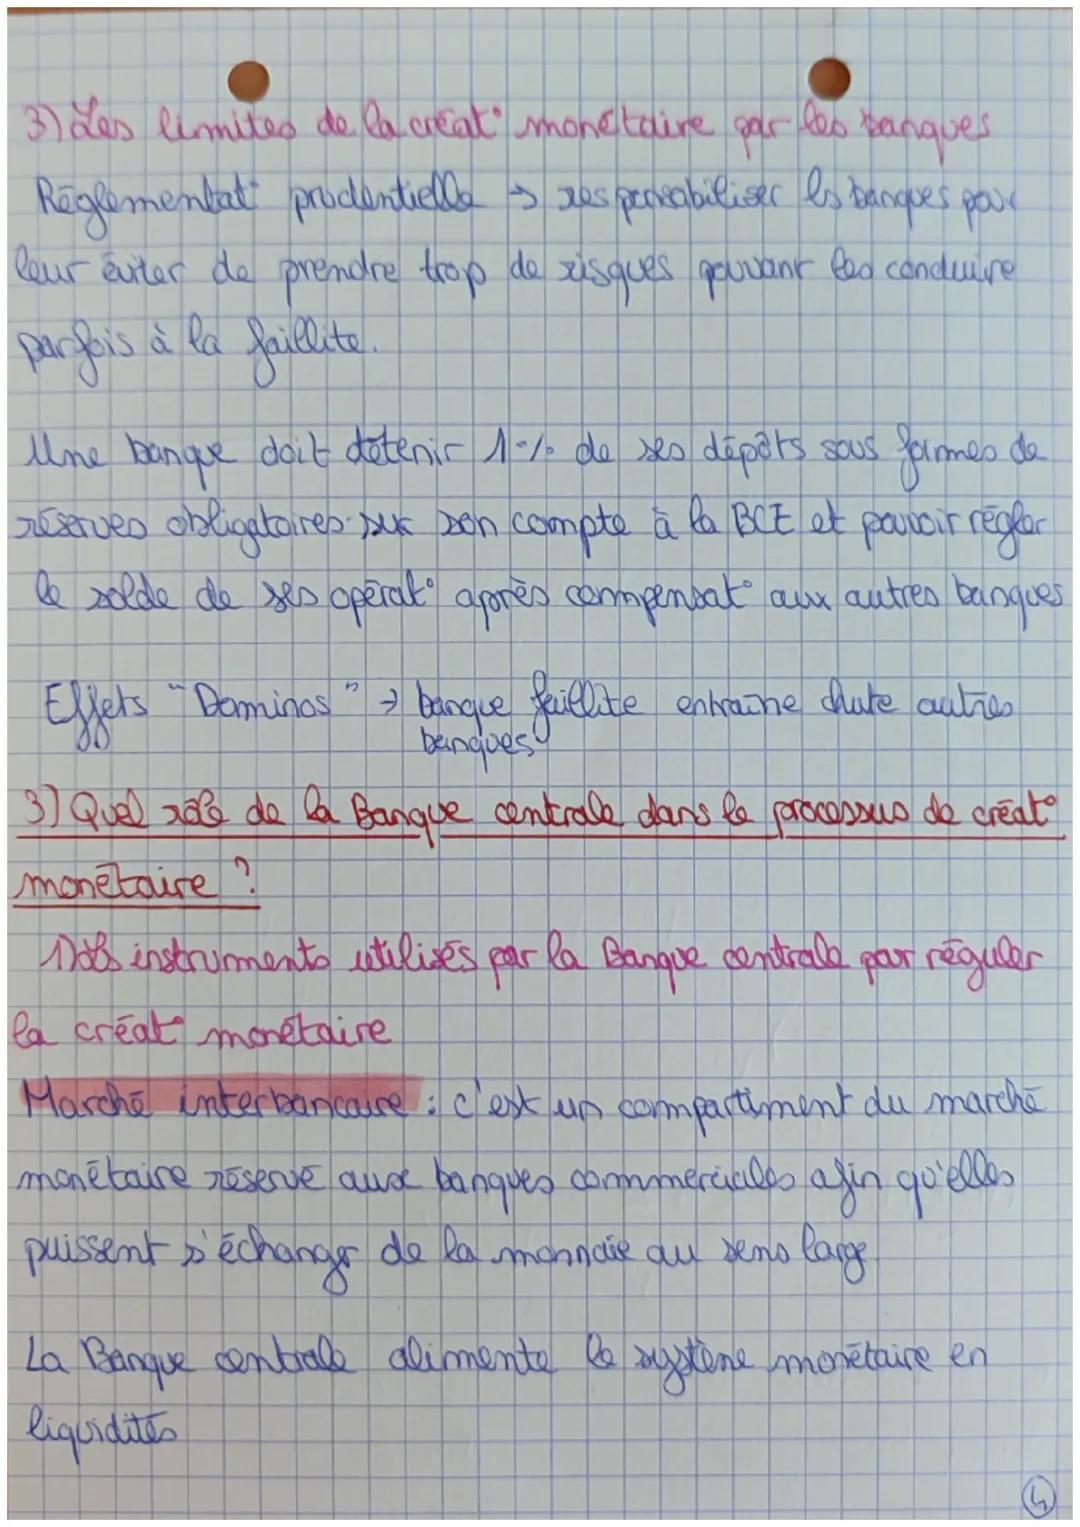 3) Les limites de la créat° monétaire par les banques
Réglementat° prudentielle → responsabiliser les banques pour
leur éviter de prendre trop de risques pouvant les conduire
parfois à la faillite.
Une banque doit détenir 1% de ses dépôts sous formes de
réserves obligatoires sur son compte à la BCE et pouvoir régler
le solde de ses opérat° après compensat° aux autres banques
Effets "Dominos" → banque faillite entraîne chute autres
banques
3) Quel rôle de la Banque centrale dans le processus de créat°
monétaire ?
1) Les instruments utilisés par la Banque centrale pour réguler
la créat° monétaire
Marché interbancaire : c'est un compartiment du marché
monétaire réservé aux banques commerciales afin qu'elles
puissent s'échanger de la monnaie au sens large.
La Banque centrale alimente le système monétaire en
liquidités
4